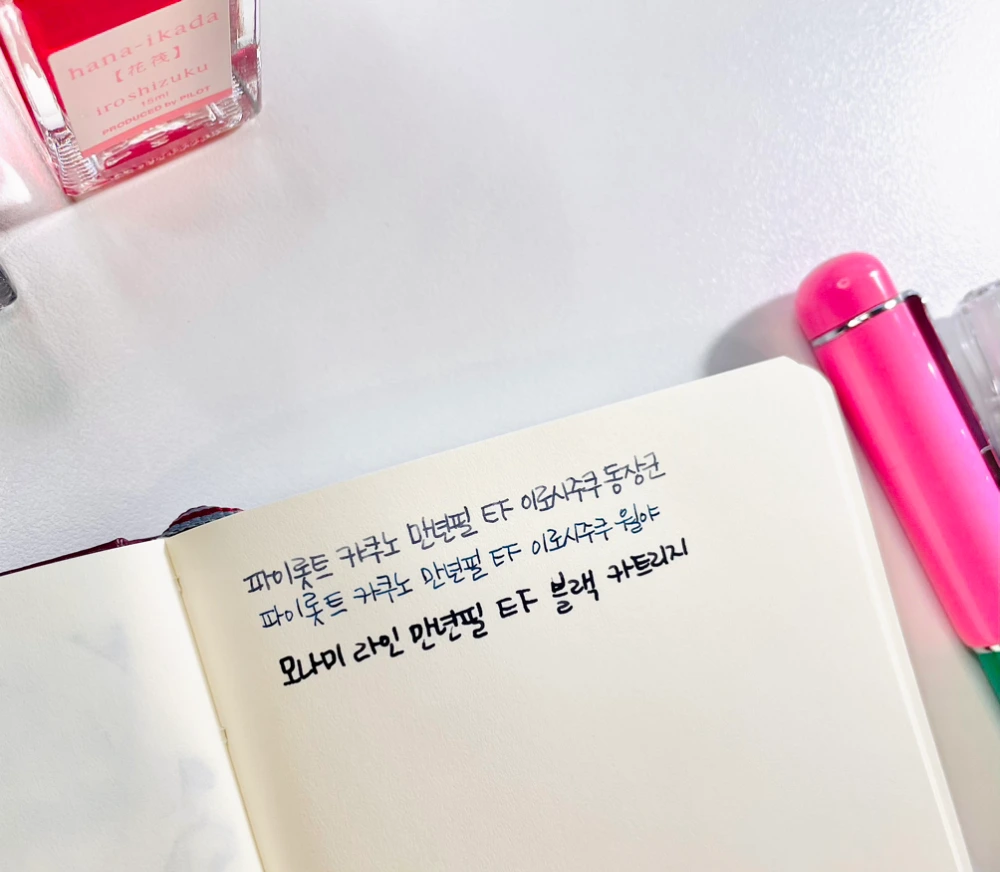 hana-ikada
【花筏】
iroshizuku
15ml
PRODUCED by PILOT
파이롯트 캬쿠노 만년필 EF 이로시주쿠 동장군
파이롯트 캬쿠노 만년필 EF 이로시주쿠 월야
모나미 라인 만년필 EF 블랙 카트리지